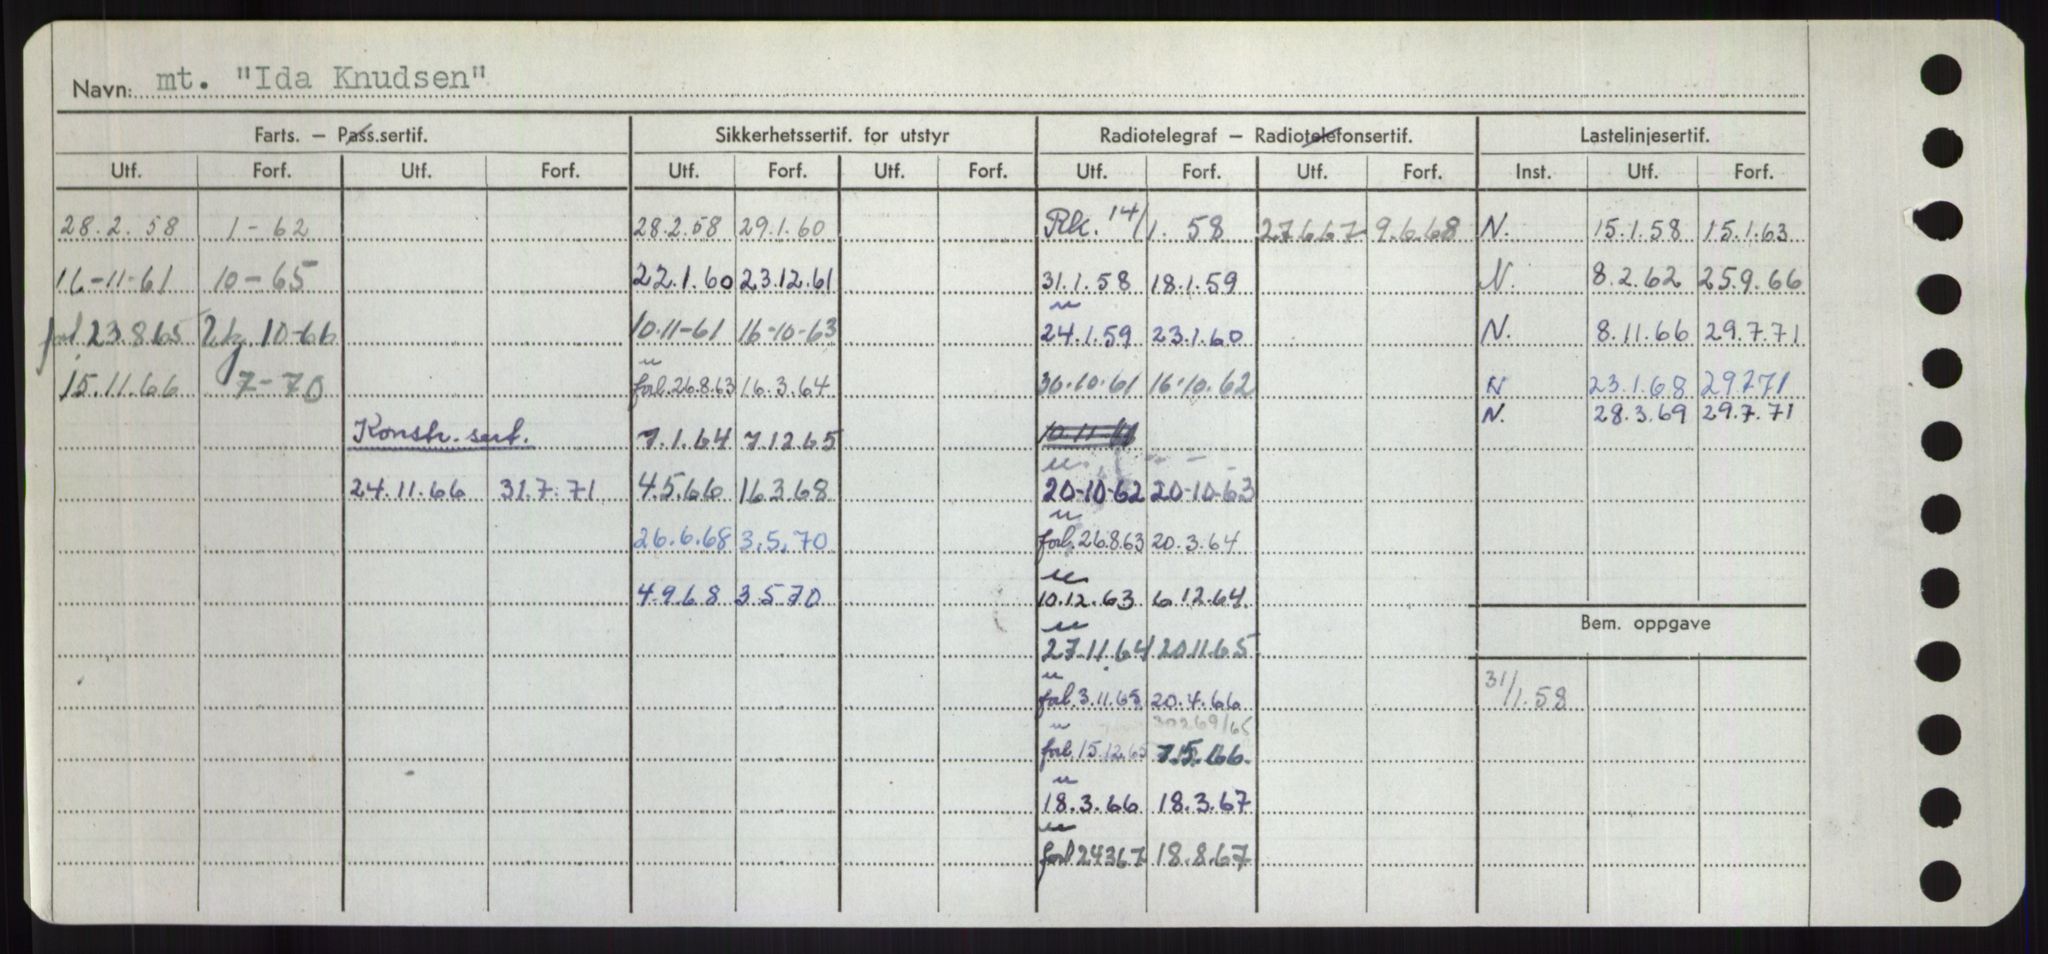 Navn: mt. "Ida Knudsen"
Farts. – Pass.sertif. Sikkerhetssertif. for utstyr Radiotelegraf – Radiotelefonsertif. Lastelinjesertif.
Utf. Forf. Utf. Forf. Utf. Forf. Utf. Forf. Utf. Forf. Utf. Forf. Inst. Utf. Forf.
28.2.58 1-62 28.2.58 29.1.60 Rk. 14/1. 58 27.6.67 9.6.68 N. 15.1.58 15.1.63
16-11-61 10-65 22.1.60 23.12.61 31.1.58 18.1.59 N. 8.2.62 25.9.66
forl. 23.8.65 10-66 10.11-61 16-10-63 " 24.1.59 23.1.60 N. 8.11.66 29.7.71
15.11.66 7-70 " forl. 26.8.63 16.3.64 30-10-61 16-10.62 N 23.1.68 29.7.71
N. 28.3.69 29.7.71
Konstr. sert. 7.1.64 7.12.65 10.11.61
24.11.66 31.7.71 4.5.66 16.3.68 " 20-10-62 20-10-63
26.6.68 3.5.70 " forl. 26.8.63 20.3.64
4.9.68 3.5.70 " 10.12.63 6.12.64
Bem. oppgave
" 27.11.64 20.11.65
" forl. 3.11.65 20.4.66 31/1.58
30269/65
" forl. 15.12.65 7.5.66
" 18.3.66 18.3.67
" forl 24367 18.8.67